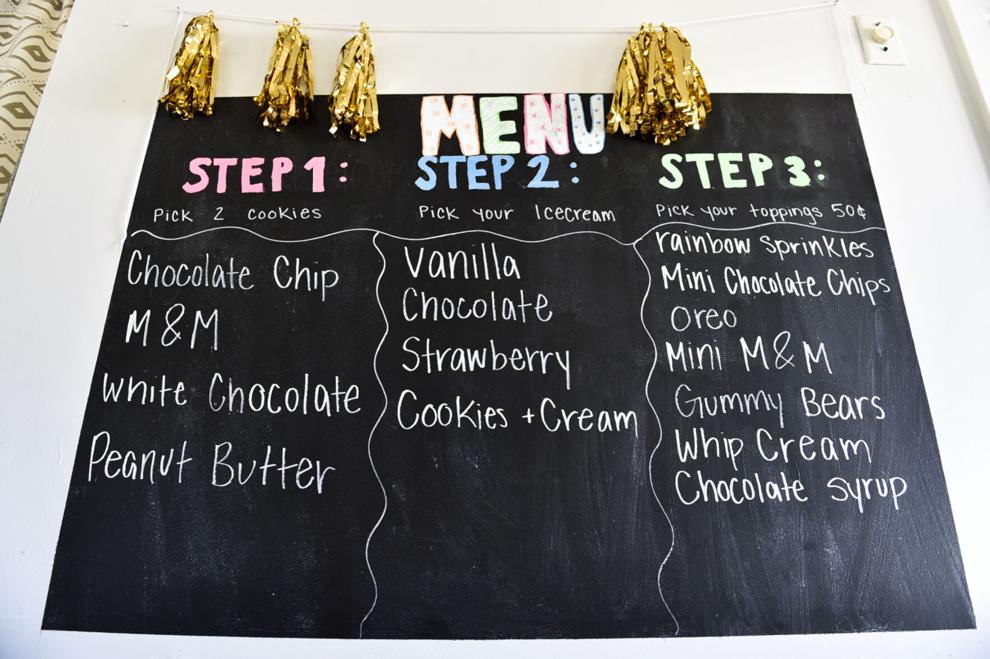 MENU
STEP 1:
Pick 2 cookies
Chocolate Chip
M&M
White Chocolate
Peanut Butter
STEP 2:
Pick your Icecream
Vanilla
Chocolate
Strawberry
Cookies + Cream
STEP 3:
Pick your toppings 50¢
rainbow sprinkles
Mini Chocolate Chips
Oreo
Mini M&M
Gummy Bears
Whip Cream
Chocolate syrup